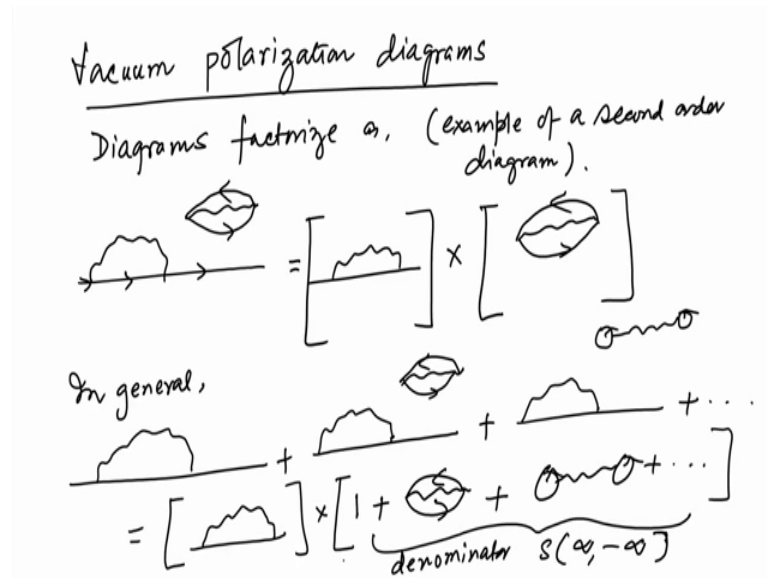 Vacuum polarization diagrams
Diagrams factorize as, (example of a second order
diagram).
= [ ] × [ ]
In general,
+ + + ...
= [ ] × [ 1 + + + ... ]
denominator S(∞,-∞)